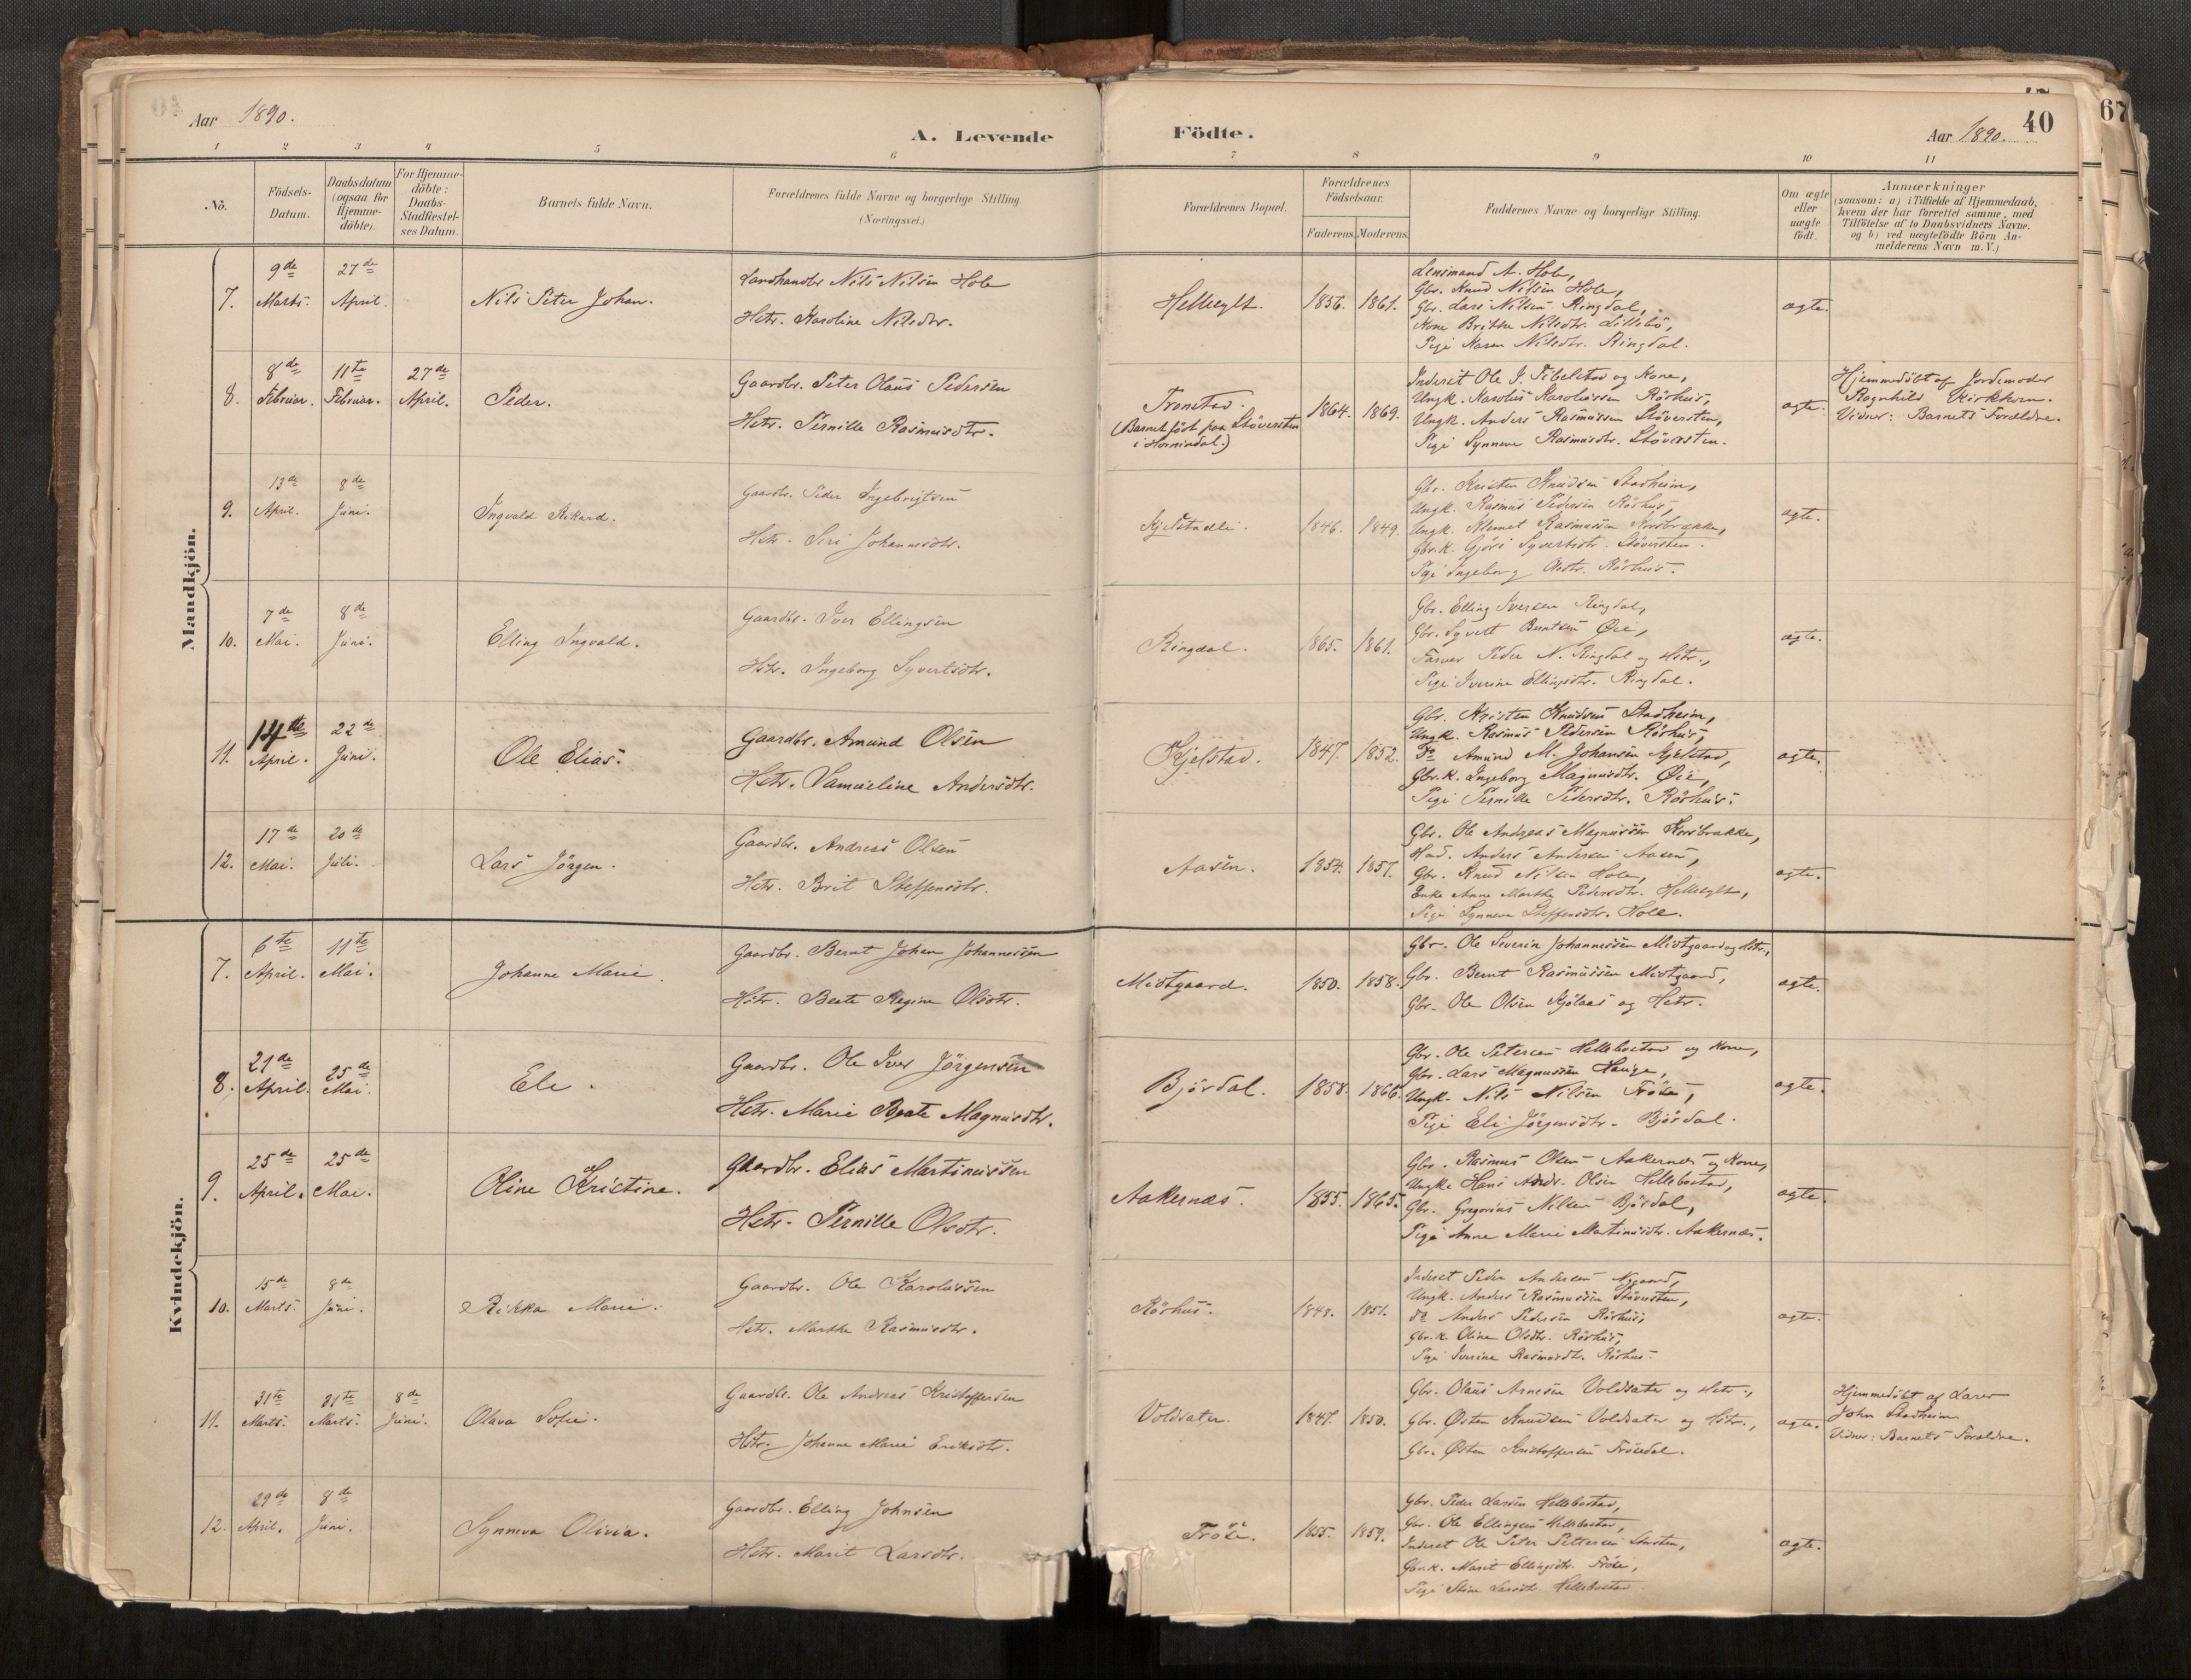 Aar 1890.
A. Levende Födte.
Aar 1890.
40
67
1 2 3 4 5 6 7 8 9 10 11
No.
Födsels-Datum.
Daabsdatum (ogsaa for Hjemme-döbte).
For Hjemme-döbte: Daabs-Stadfæstel-ses Datum.
Barnets fulde Navn.
Forældrenes fulde Navne og borgerlige Stilling. (Næringsvei.)
Forældrenes Bopæl.
Forældrenes Födselsaar.
Faderens. Moderens.
Faddernes Navne og borgerlige Stilling.
Om ægte eller uægte födt.
Anmærkninger
(saasom: a) i Tilfælde af Hjemmedaab,
hvem der har forrettet samme, med
Tilföielse af to Daabsvidners Navne.
og b) ved uægtefödte Börn An-
melderens Navn m. V.)
Mandkjön.
7. 9de Marts. 27de April. Nils Peter Johan.
Landhandler Nils Nilsen Hole
Hstr. Karoline Nilsdtr.
Hellesylt. 1856. 1861.
Lensmand A. Hole,
Gbr. Knud Nilsen Hole,
Gbr. Lars Nilsen Ringdal,
Kone Brithe Nilsdtr. Lillebö,
Pige Karen Nilsdtr. Ringdal.
ægte.
8. 8de Februar. 11te Februar. 27de April. Peder.
Gaardbr. Peter Olaus Pedersen
Hstr. Pernille Rasmusdtr.
Tronstad.
(Barnet född paa Stöversten
i Hornindal.)
1864. 1869.
Inderst Ole J. Tibelstad og Kone,
Ungk. Karolus Karolussen Rörhus,
Ungk. Anders Rasmussen Stöversten,
Pige Synneve Rasmusdtr. Stöversten.
ægte.
Hjemmedöbt af Jordemoder
Ragnhild Kirkhorn.
Vidner: Barnets Forældre.
9. 13de April. 8de Juni. Ingvald Rikard.
Gaardbr. Peder Ingebrigtsen
Hstr. Siri Johannesdtr.
Kjelstadli. 1846. 1849.
Gbr. Kristen Knudsen Stadheim,
Ungk. Rasmus Pedersen Rörhus,
Ungk. Klemet Rasmussen Korsbrække,
Gbr.k. Gjöri Syvertsdtr. Stöversten.
Pige Ingeborg Olsdtr. Rörhus.
ægte.
10. 7de Mai. 8de Juni. Elling Ingvald.
Gaardbr. Iver Ellingsen
Hstr. Ingeborg Syvertsdtr.
Ringdal. 1865. 1861.
Gbr. Elling Iversen Ringdal,
Gbr. Syvert Berntsen Øie,
Farver Peder N. Ringdal og Hstr.,
Pige Iverine Ellingsdtr. Ringdal.
ægte.
11. 14de April. 22de Juni. Ole Elias.
Gaardbr. Amund Olsen
Hstr. Samueline Andersdtr.
Kjelstad. 1847. 1852.
Gbr. Kristen Knudsen Stadheim,
Ungk. Rasmus Pedersen Rörhus,
Do Amund M. Johansen Kjelstad,
Gbr.k. Ingeborg Magnusdtr. Øie,
Pige Pernille Pedersdtr. Rörhus.
ægte.
12. 17de Mai. 20de Juli. Lars Jörgen.
Gaardbr. Andreas Olsen
Hstr. Brit Steffensdtr.
Aasen. 1854. 1857.
Gbr. Ole Andreas Magnussen Korsbrække,
Hmd. Anders Andersen Aasen,
Gbr. Knud Nilsen Hole,
Enke Anne Marthe Pedersdtr. Hellesylt,
Pige Synneve Steffensdtr. Hole.
ægte.
Kvindekjön.
7. 6te April. 11te Mai. Johanne Marie.
Gaardbr. Bernt Johan Johannessen
Hstr. Beate Regine Olsdtr.
Midtgaard. 1850. 1858.
Gbr. Ole Severin Johannessen Midtgaard og Hstr.,
Gbr. Bernt Rasmussen Midtgaard,
Gbr. Ole Olsen Kjölaas og Hstr.
ægte.
8. 21de April. 25de Mai. Ele.
Gaardbr. Ole Iver Jörgensen
Hstr. Marie Beate Magnusdtr.
Björdal. 1858. 1866.
Gbr. Ole Petersen Hellebostad og Kone,
Gbr. Lars Magnussen Hauge,
Ungk. Nils Nilsen Fröse,
Pige Eli Jörgensdtr. Björdal.
ægte.
9. 25de April. 25de Mai. Oline Kristine.
Gaardbr. Elias Martinussen
Hstr. Pernille Olsdtr.
Aakernæs. 1855. 1865.
Gbr. Rasmus Olsen Aakernæs og Kone,
Ungk. Hans Andr. Olsen Hellebostad,
Gbr. Gregorius Nilsen Björdal,
Pige Anne Marie Martinusdtr. Aakernæs.
ægte.
10. 15de Marts. 8de Juni. Rikka Marie.
Gaardbr. Ole Karolussen
Hstr. Marthe Rasmusdtr.
Rörhus. 1848. 1851.
Inderst Peder Andersen Nygaard,
Ungk. Anders Rasmussen Stöversten,
Do Anders Pedersen Rörhus,
Gbr.k. Oline Olsdtr. Rörhus,
Pige Iverine Rasmusdtr. Rörhus.
ægte.
11. 31te Marts. 31te Marts. 8de Juni. Olava Sofie.
Gaardbr. Ole Andreas Kristoffersen
Hstr. Johanne Marie Eriksdtr.
Voldsæter. 1847. 1850.
Gbr. Olaus Arnesen Voldsæter og Hstr.,
Gbr. Østen Knudsen Voldsæter og Hstr.,
Gbr. Østen Kristoffersen Frösedal.
ægte.
Hjemmedöbt af Lærer
John Stadheim
Vidner: Barnets Forældre.
12. 29de April. 8de Juni. Synneva Olivia.
Gaardbr. Elling Johnsen
Hstr. Marit Larsdtr.
Fröse. 1855. 1859.
Gbr. Peder Larsen Hellebostad,
Gbr. Ole Ellingsen Hellebostad,
Inderst Ole Peter Pettersen
Gbr.k. Marit Ellingsdtr. Fröse,
Pige Stine Larsdtr. Hellebostad
ægte.